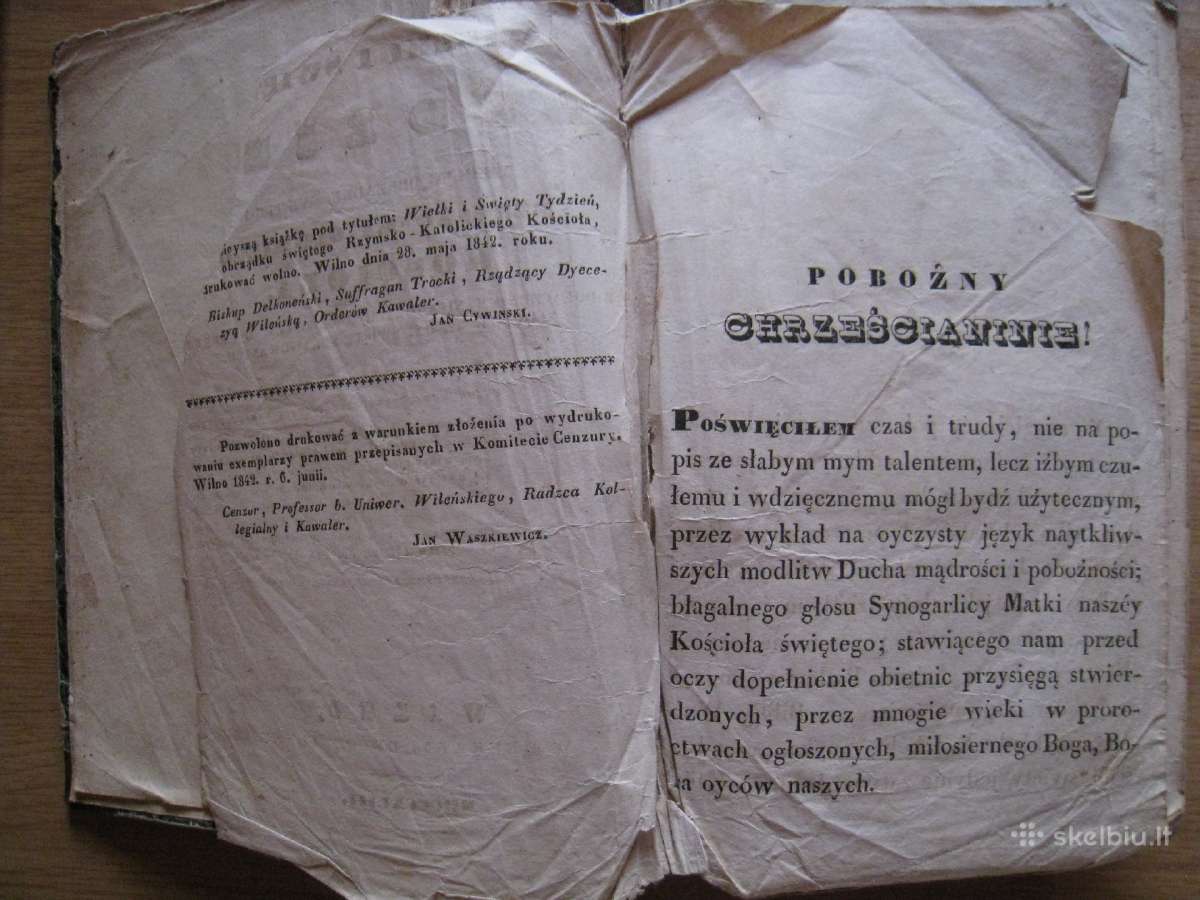 książkę pod tytułem: Wielki i Swięty Tydzień,
obrządku świętego Rzymsko-Katolickiego Kościoła,
drukować wolno. Wilno dnia 28. maja 1842. roku.
Biskup Delkoneński, Suffragan Trocki, Rządzący Dyece-
zyą Wileńską, Orderów Kawaler.
Jan Cywinski.
Pozwolono drukować z warunkiem złożenia po wydruko-
waniu exemplarzy prawem przepisanych w Komitecie Cenzury.
Wilno 1842. r. 6. junii.
Cenzor, Professor b. Uniwer. Wileńskiego, Radzca Kol-
legialny i Kawaler.
Jan Waszkiewicz.
POBOŹNY
CHRZEŚCIANINIE!
Poświęciłem czas i trudy, nie na po-
pis ze słabym mym talentem, lecz iźbym czu-
łemu i wdzięcznemu mógł bydź uźytecznym,
przez wykład na oyczysty język naytkliw-
szych modlitw Ducha mądrości i poboźności;
błagalnego głosu Synogarlicy Matki naszéy
Kościoła świętego; stawiącego nam przed
oczy dopełnienie obietnic przysięgą stwier-
dzonych, przez mnogie wieki w proro-
ctwach ogłoszonych, miłosiernego Boga, Bo-
ga oyców naszych.
skelbiu.lt